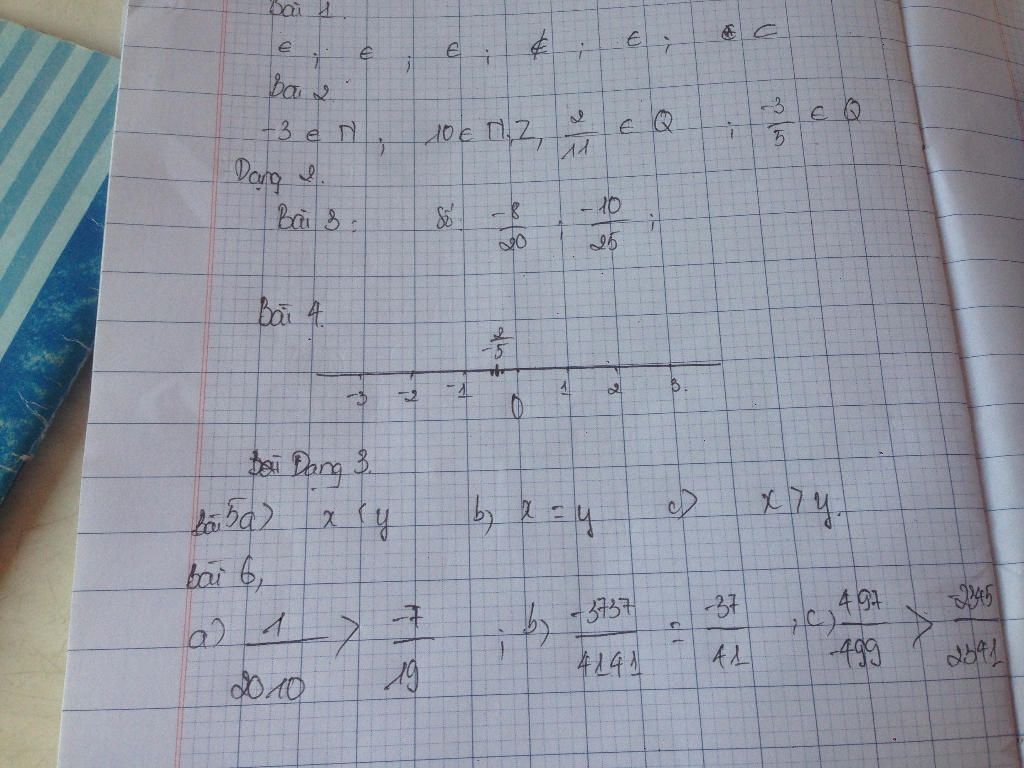 Bài 1.
∈ ; ∈ ; ∈ ; ∉ ; ∈ ; ⊂
Bài 2
-3 ∈ Π ; 10 ∈ Π, Z, 2/11 ∈ Q ; -3/5 ∈ Q
Dạng 2.
Bài 3 : Số -8/20 ; -10/25 ;
Bài 4.
2/-5
-3 -2 -1 0 1 2 3.
Dạng 3.
Bài 5a) x < y b, x = y c) x > y.
Bài 6,
a) 1/2010 > -7/19 ; b) -3737/4141 = -37/41 ; c) 497/-499 > -2345/2341